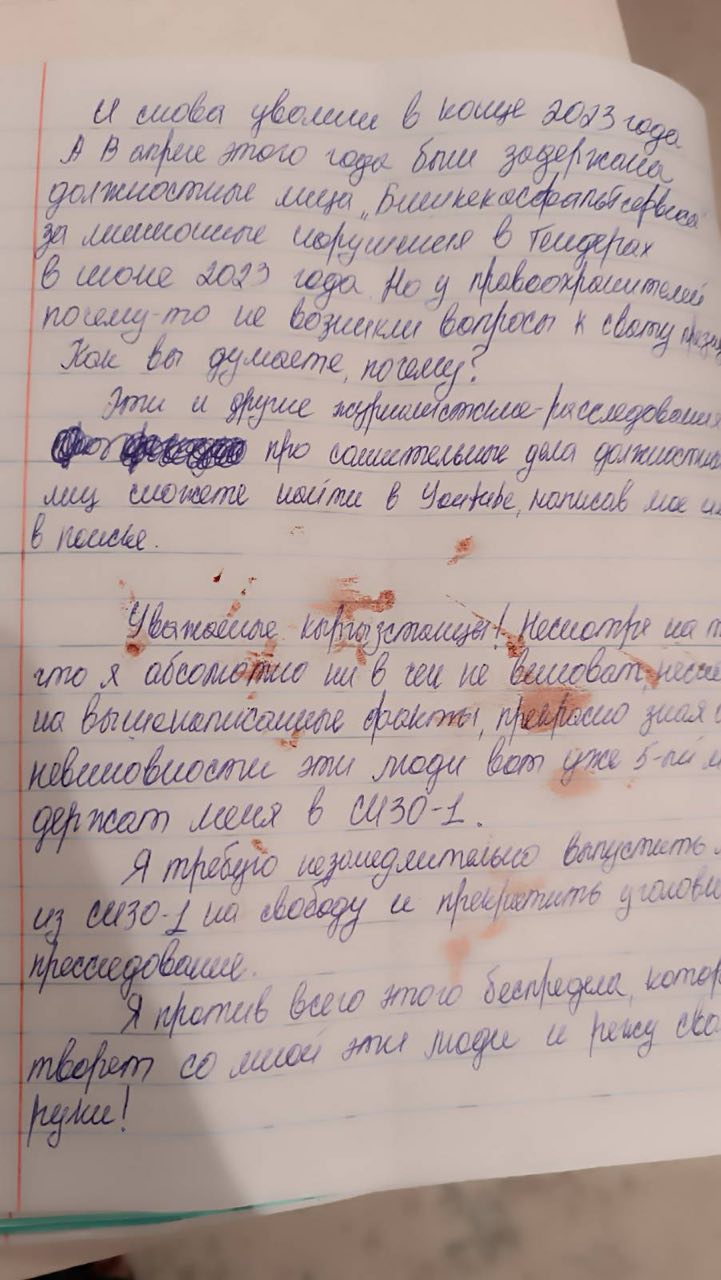 И снова уволили в конце 2023 года.
А В апреле этого года были задержаны
должностные лица „Бишкекасфальтсервиса"
за миллионные нарушения в Тендерах
в июне 2023 года. Но у правоохранителей
почему-то не возникли вопросы к свату
Как вы думаете, почему?
Эти и другие журналистские-расследования
про сомнительные дела должностных
лиц сможете найти в Youtube, написав мое
в поиске.
Уважаемые кыргызстанцы! Несмотря на
что я абсолютно ни в чем не виноват,
на вышенаписанные факты, прекрасно зная
невиновности эти люди вот уже 5-ый
держат меня в СИЗО-1.
Я требую незамедлительно выпустить
из СИЗО-1 на свободу и прекратить
преследование.
Я против всего этого беспредела,
творят со мной эти люди и режу
руки!